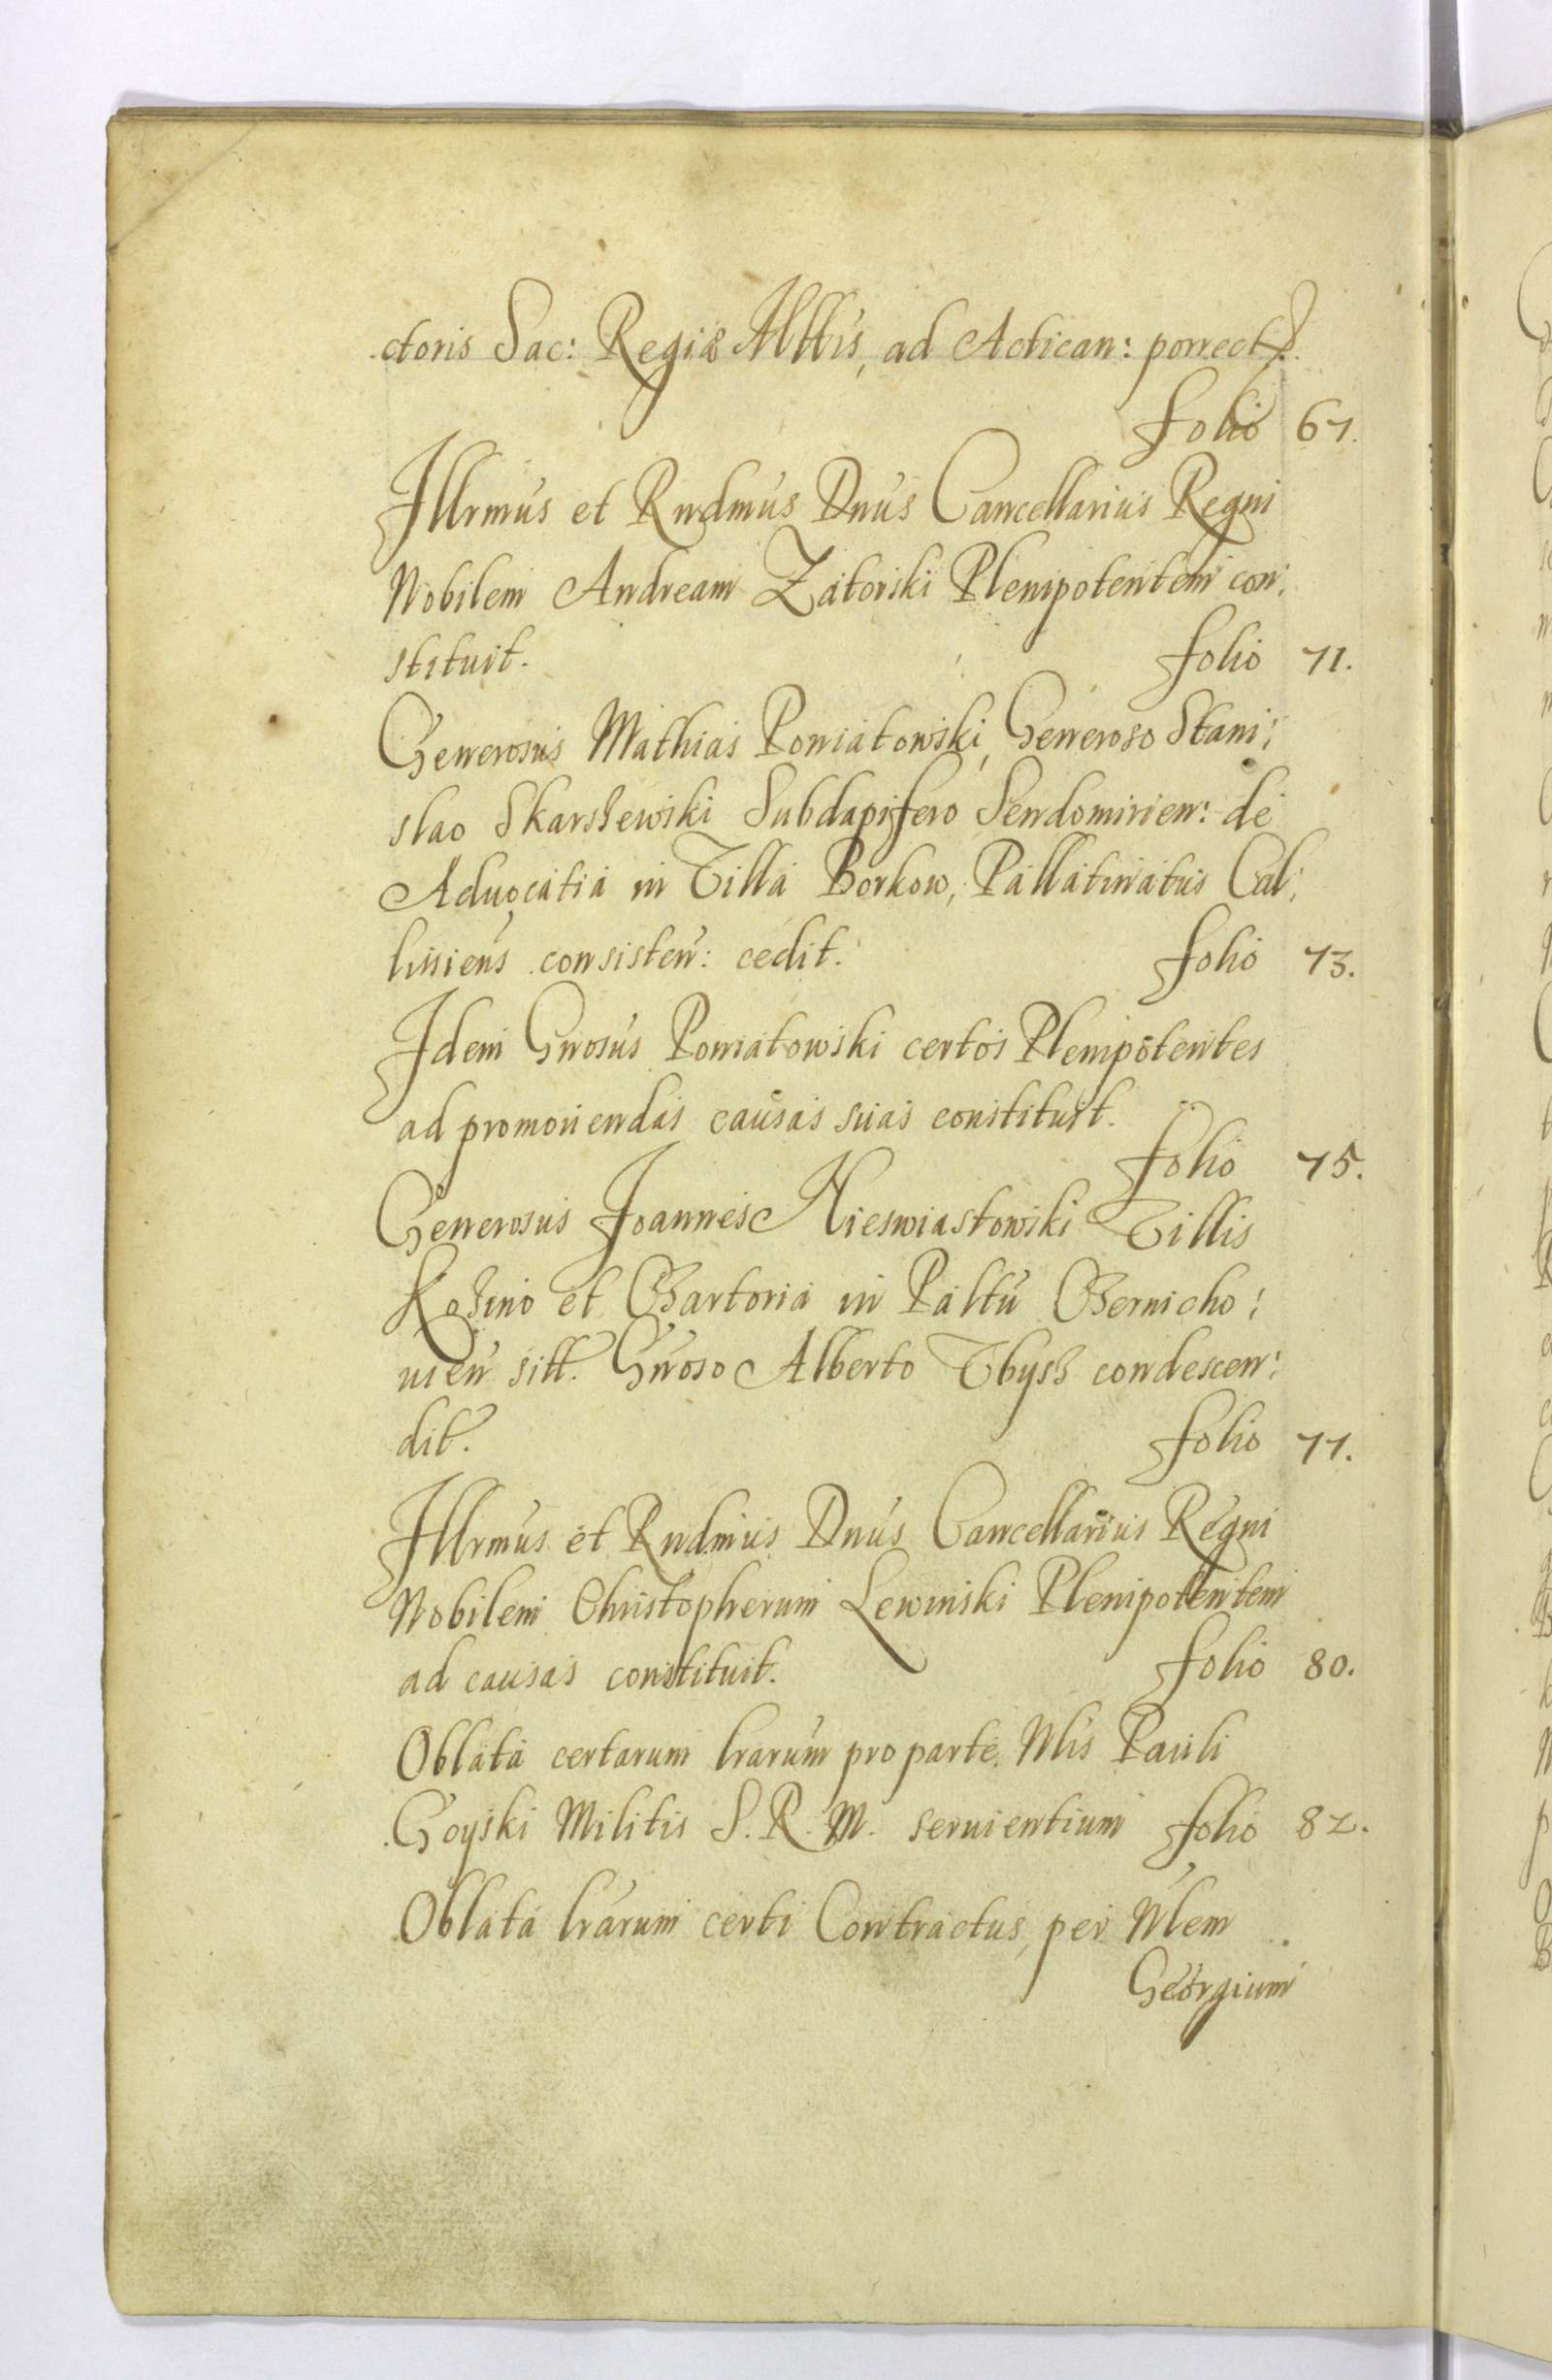 ctoris Sac: Regiæ Mttis, ad Actican: porrect.
folio 67.
Illrmus et Rndmus Dnus Cancellarius Regni
Nobilem Andream Zatorski Plenipotentem con:
stituit. folio 71.
Generosus Mathias Poniatowski, Generoso Stani:
slao Skarszewski Subdapifero Sendomirien: de
Aduocatia in Villa Borkow, Pallatinatus Cal:
lissiens consisten: cedit. folio 73.
Idem Gnrosus Poniatowski certos Plenipotentes
ad promouendas causas suas constituit.
folio 75.
Generosus Joannes Nieswiastowski Villis
Kozino et Czartoria in Paltu Czernicho:
uien sitt. Gnroso Alberto Zbysz condescen:
dit. folio 77.
Illrmus et Rndmus Dnus Cancellarius Regni
Nobilem Christopherum Lewinski Plenipotentem
ad causas constituit. folio 80.
Oblata certarum lrarum pro parte Nlis Pauli
Goyski Militis S. R. M. seruientium folio 82.
Oblata lrarum certi Contractus, per Nlem
Georgium